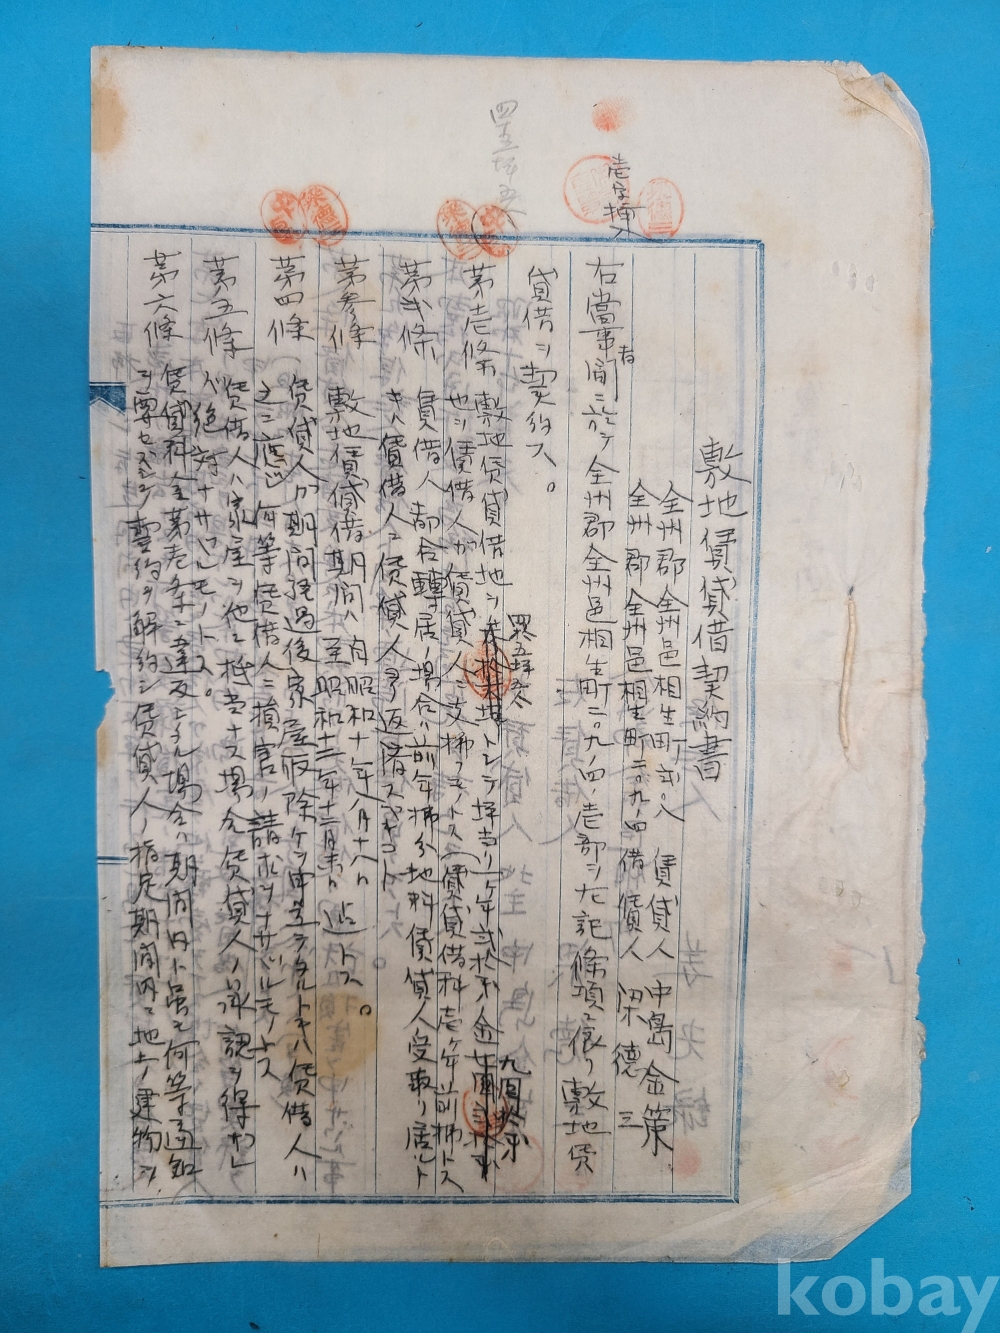 敷地賃貸借契約書
全州郡全州邑相生町弐〇八 賃貸人 中島金策
全州郡全州邑相生町二〇九ノ四 借賃人 梁徳三
壱字挿入
右當事者間ニ於テ全州郡全州邑相生町二〇九ノ四ノ壱部ヲ左記條項ニ依リ敷地賃
貸借ヲ契約ス。
四五坪五
第壱條 敷地賃貸借地ヲ 四五坪五 トシテ坪当リ一年弐拾銭 金 九円拾銭
也ヲ賃借人ガ賃貸人ニ支拂フモノトス(賃貸借料壱ヶ年前拂トス)
第弐條 賃借人都合轉居ノ場合ハ前年拂分地料賃貸人受取リ居ルト
キハ賃借人ニ賃貸人ヨリ返済スベキコト。
第参條 敷地賃貸借期間ハ自昭和十年八月十八日
至昭和十二年十二月末日迄トス。
第四條 賃貸人ガ期間経過後家屋取除ケヲ申立テタルトキハ賃借人ハ
之ニ應ジ何等賃借人ニ損害ノ請求ヲナサザルモノトス
第五條 賃借人ハ家屋ヲ他ニ抵当ナス場合賃貸人ノ承認ヲ得ザレ
バ絶対ナサザルモノトス。
第六條 賃貸料金第壱条ニ違反シタル場合ハ期間内ト虽モ何等通知
ヲ要セズシテ契約ヲ解約シ賃貸人ノ指定期間内ニ地上ノ建物ヲ
kobay